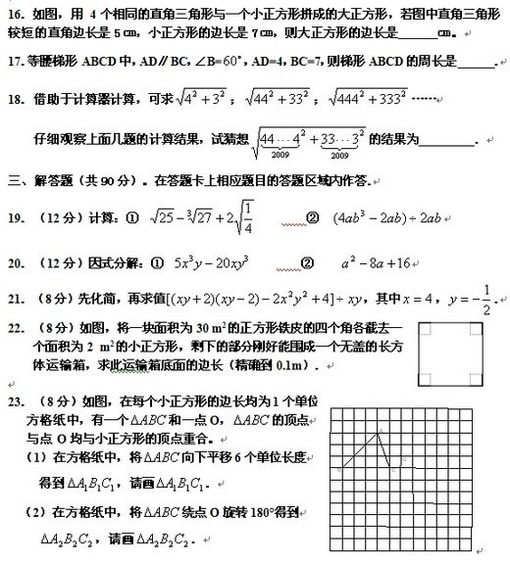 16. 如图，用 4 个相同的直角三角形与一个小正方形拼成的大正方形，若图中直角三角形
较短的直角边长是 5 cm，小正方形的边长是 7 cm，则大正方形的边长是______cm。
17. 等腰梯形 ABCD 中，AD∥BC，∠B=60°，AD=4，BC=7，则梯形 ABCD 的周长是______.
18. 借助于计算器计算，可求√(4²+3²)；√(44²+33²)；√(444²+333²)……
仔细观察上面几题的计算结果，试猜想√(44…4²+33…3²) 的结果为______.
2009 2009
三、解答题（共 90 分）。在答题卡上相应题目的答题区域内作答.
19. （12 分）计算：① √25−³√27+2√(1/4) ② (4ab³−2ab)÷2ab
20. （12 分）因式分解：① 5x³y−20xy³ ② a²−8a+16
21. （8 分）先化简，再求值[(xy+2)(xy−2)−2x²y²+4]÷xy，其中 x=4，y=−1/2.
22. （8 分）如图，将一块面积为 30 m²的正方形铁皮的四个角各截去一
个面积为 2 m²的小正方形，剩下的部分刚好能围成一个无盖的长方
体运输箱，求此运输箱底面的边长（精确到 0.1m）.
23. （8 分）如图，在每个小正方形的边长均为 1 个单位
方格纸中，有一个△ABC 和一点 O，△ABC 的顶点
与点 O 均与小正方形的顶点重合。
（1）在方格纸中，将△ABC 向下平移 6 个单位长度
得到△A₁B₁C₁，请画△A₁B₁C₁.
（2）在方格纸中，将△ABC 绕点 O 旋转 180°得到
△A₂B₂C₂，请画△A₂B₂C₂.